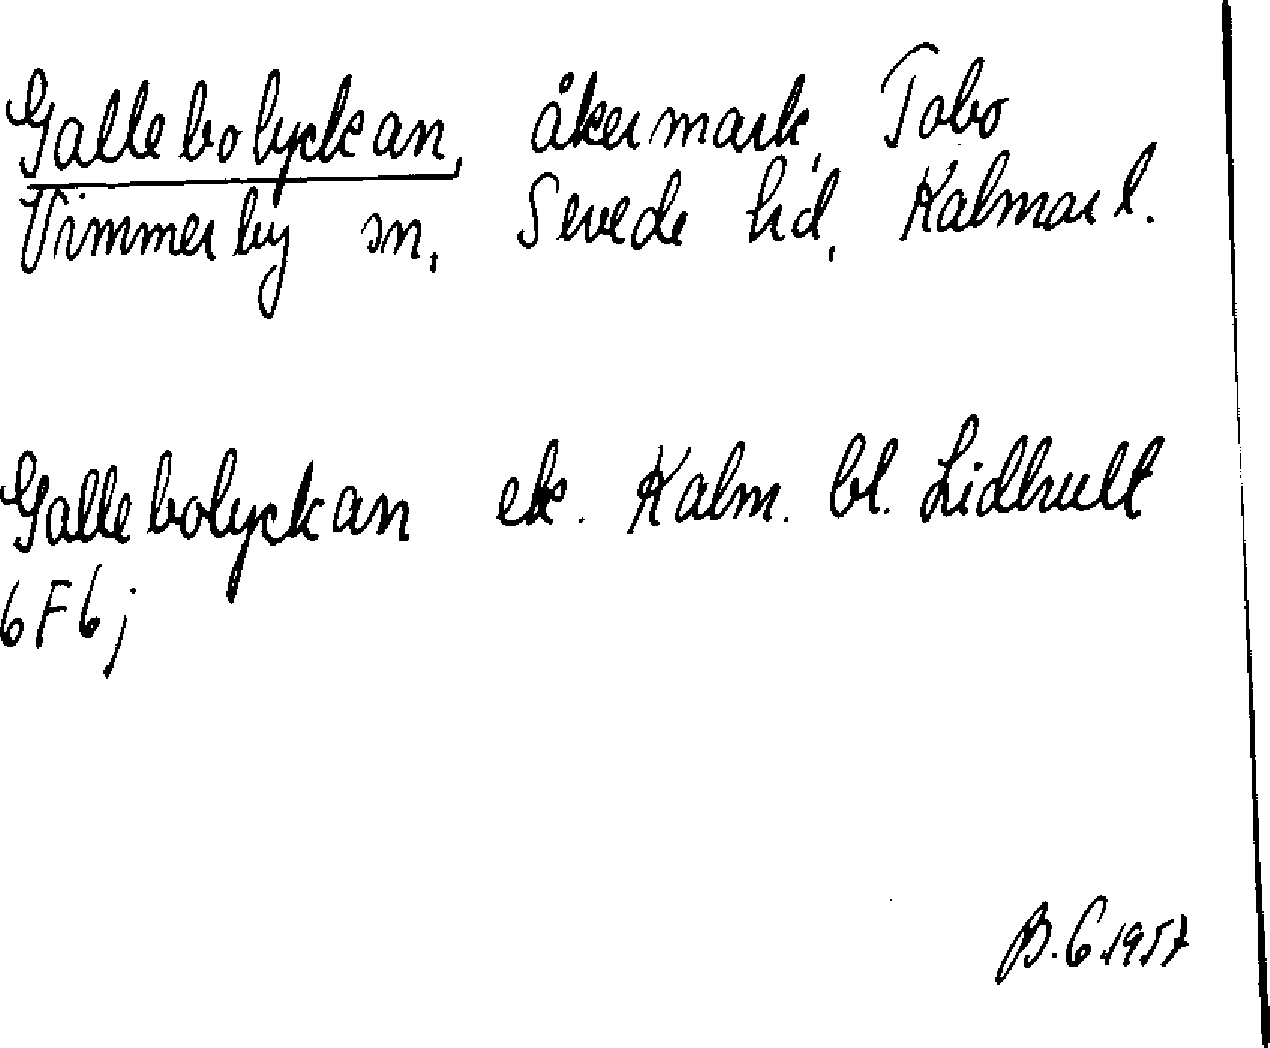 Gallebolyckan, åkermark, Tobo
Vimmerby sn, Sevede hd, Kalmar l.
Gallebolyckan ek. Kalm. bl. Lidhult
6F6j
B.G 1957